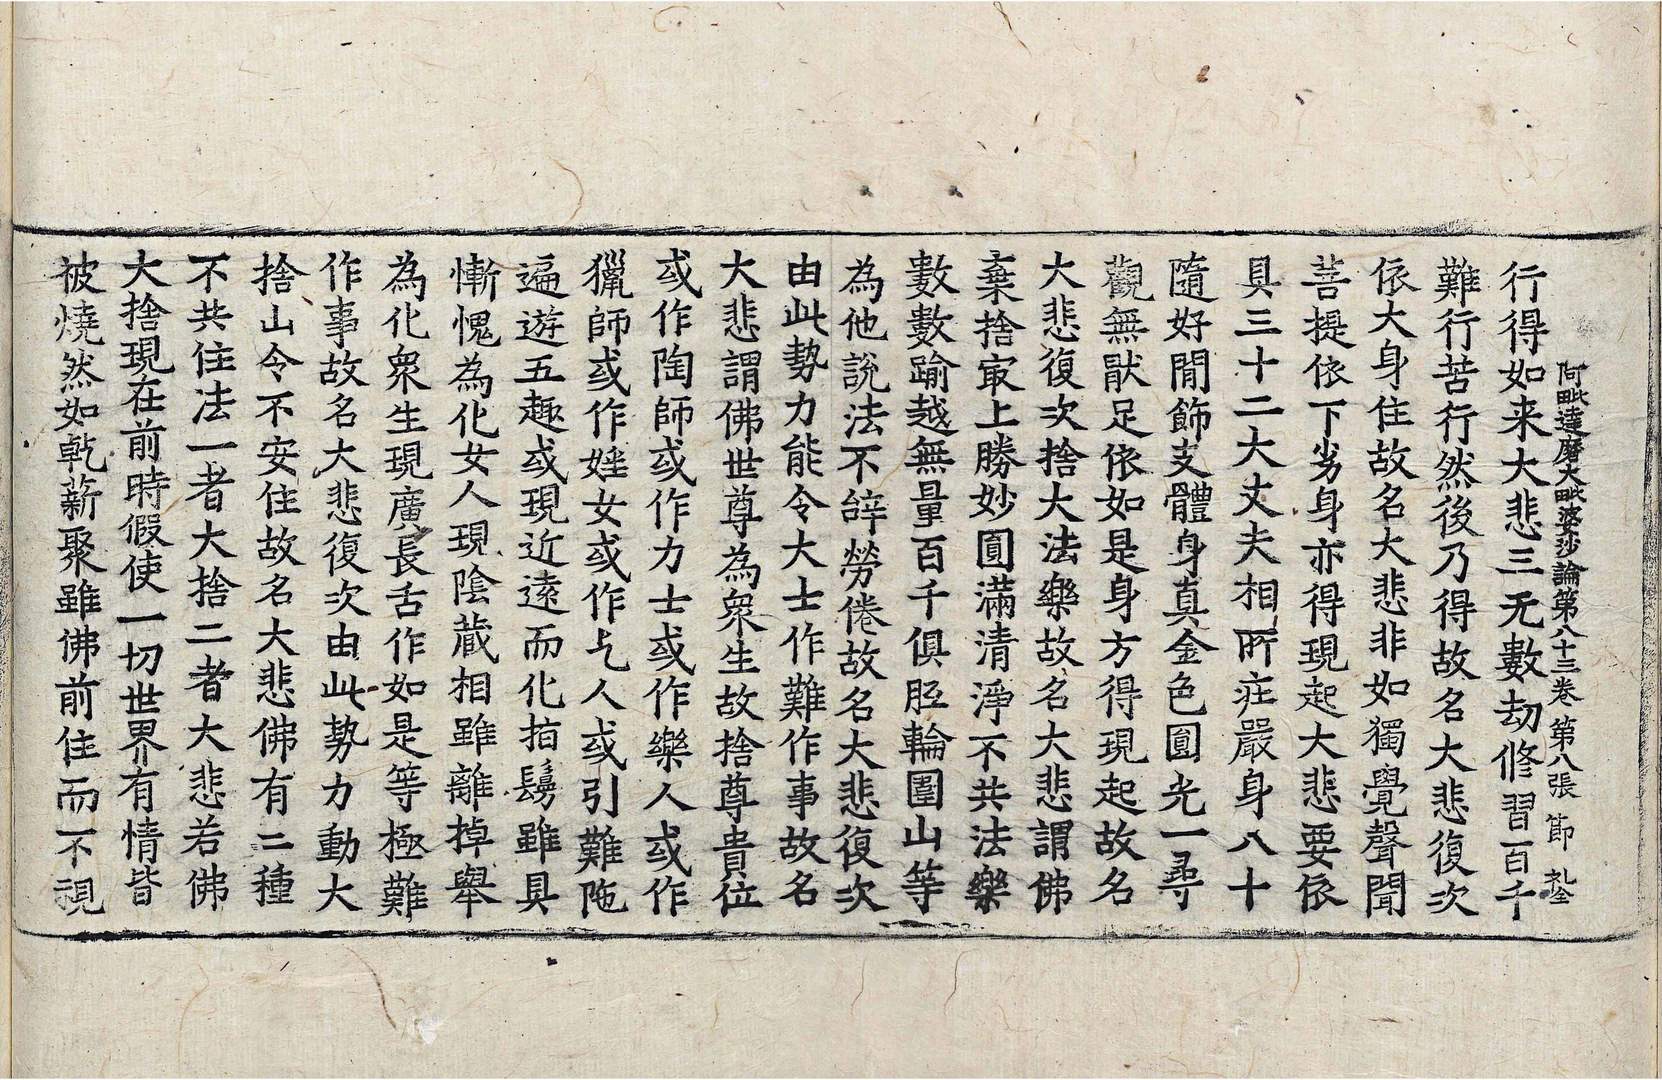 阿毗達磨大毗婆沙論第八十三卷 第八張 節
行得如来大悲三无數劫修習百千
難行苦行然後乃得故名大悲復次
依大身住故名大悲非如獨覺聲聞
菩提依下劣身亦得現起大悲要依
具三十二大丈夫相所庄嚴身八十
隨好閒飾支體身真金色圓光一尋
觀無猒足依如是身方得現起故名
大悲復次捨大法樂故名大悲謂佛
棄捨冣上勝妙圓滿清淨不共法樂
數數踰越無量百千俱胝輪圍山等
為他說法不辝勞倦故名大悲復次
由此勢力能令大士作難作事故名
大悲謂佛世尊為衆生故捨尊貴位
或作陶師或作力士或作樂人或作
獵師或作婬女或作乞人或引難陁
遍遊五趣或現近遠而化指鬘雖具
慚愧為化女人現陰藏相雖離掉舉
為化衆生現廣長舌作如是等極難
作事故名大悲復次由此勢力動大
捨山令不安住故名大悲佛有二種
不共住法一者大捨二者大悲若佛
大捨現在前時假使一切世界有情皆
被燒然如乾薪聚雖佛前住而不視